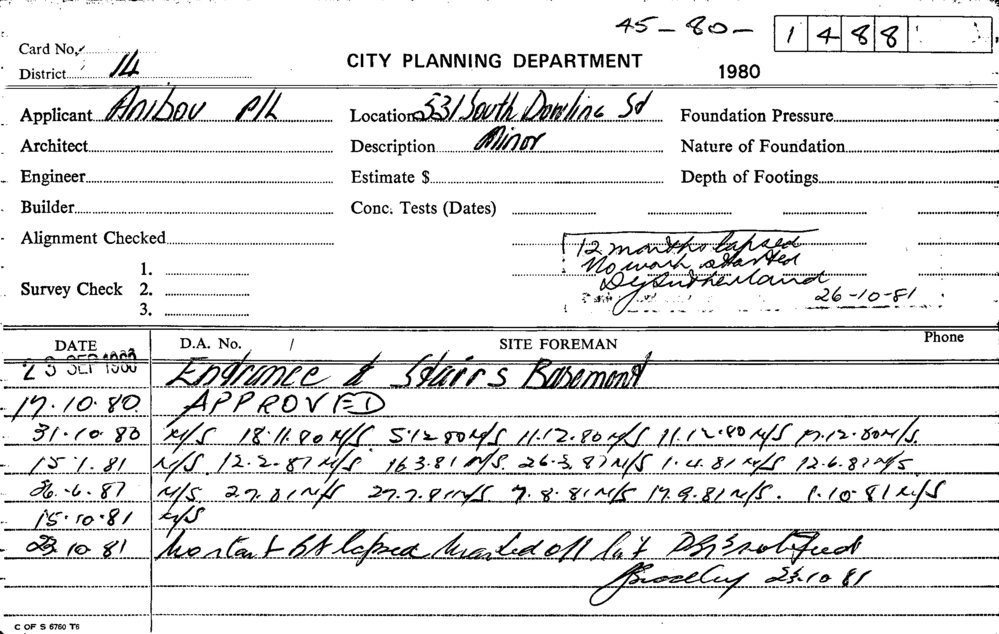 45-80- 1488
Card No.
District 14
CITY PLANNING DEPARTMENT 1980
Applicant Anibou P/L Location 531 South Dowling St Foundation Pressure
Architect Description Minor Nature of Foundation
Engineer Estimate $ Depth of Footings
Builder Conc. Tests (Dates)
Alignment Checked
12 months lapsed
No work started
1.
Survey Check 2.
3.
DJ Sutherland
26-10-81
DATE D.A. No. / SITE FOREMAN Phone
23 SEP 1980 Entrance & Stairs Basemont
17.10.80 APPROVED
31.10.80 N/S 18.11.80 N/S 5.12.80 N/S 11.12.80 N/S 11.12.80 N/S 17.12.80 N/S.
15.1.81 N/S 12.2.81 N/S 16.3.81 N/S. 26.3.81 N/S 1.4.81 N/S 12.6.81 N/S
26.6.81 N/S 27.7.81 N/S 7.8.81 N/S 17.9.81 N/S. 1.10.81 N/S
15.10.81 N/S
23.10.81 lapsed off notified
23.10.81
C OF S 6760 T6